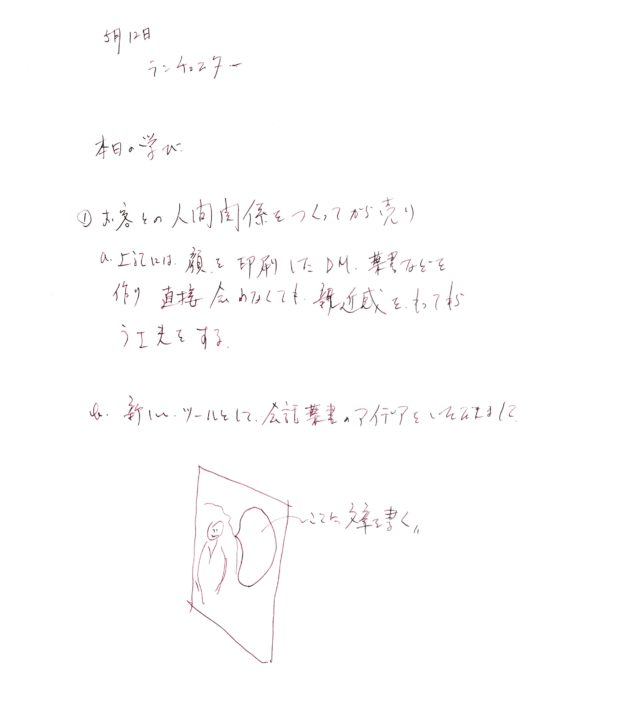 5月12日
ランチェスター
本日の学び
① お客との人間関係をつくってから売り
a. 上記には、顔を印刷したDM、葉書などを
作り 直接 会わなくても、親近感を、もってもら
う工夫をする.
b. 新しい、ツールとして、会話葉書のアイデアをいただきました
ここに文章を書く〃